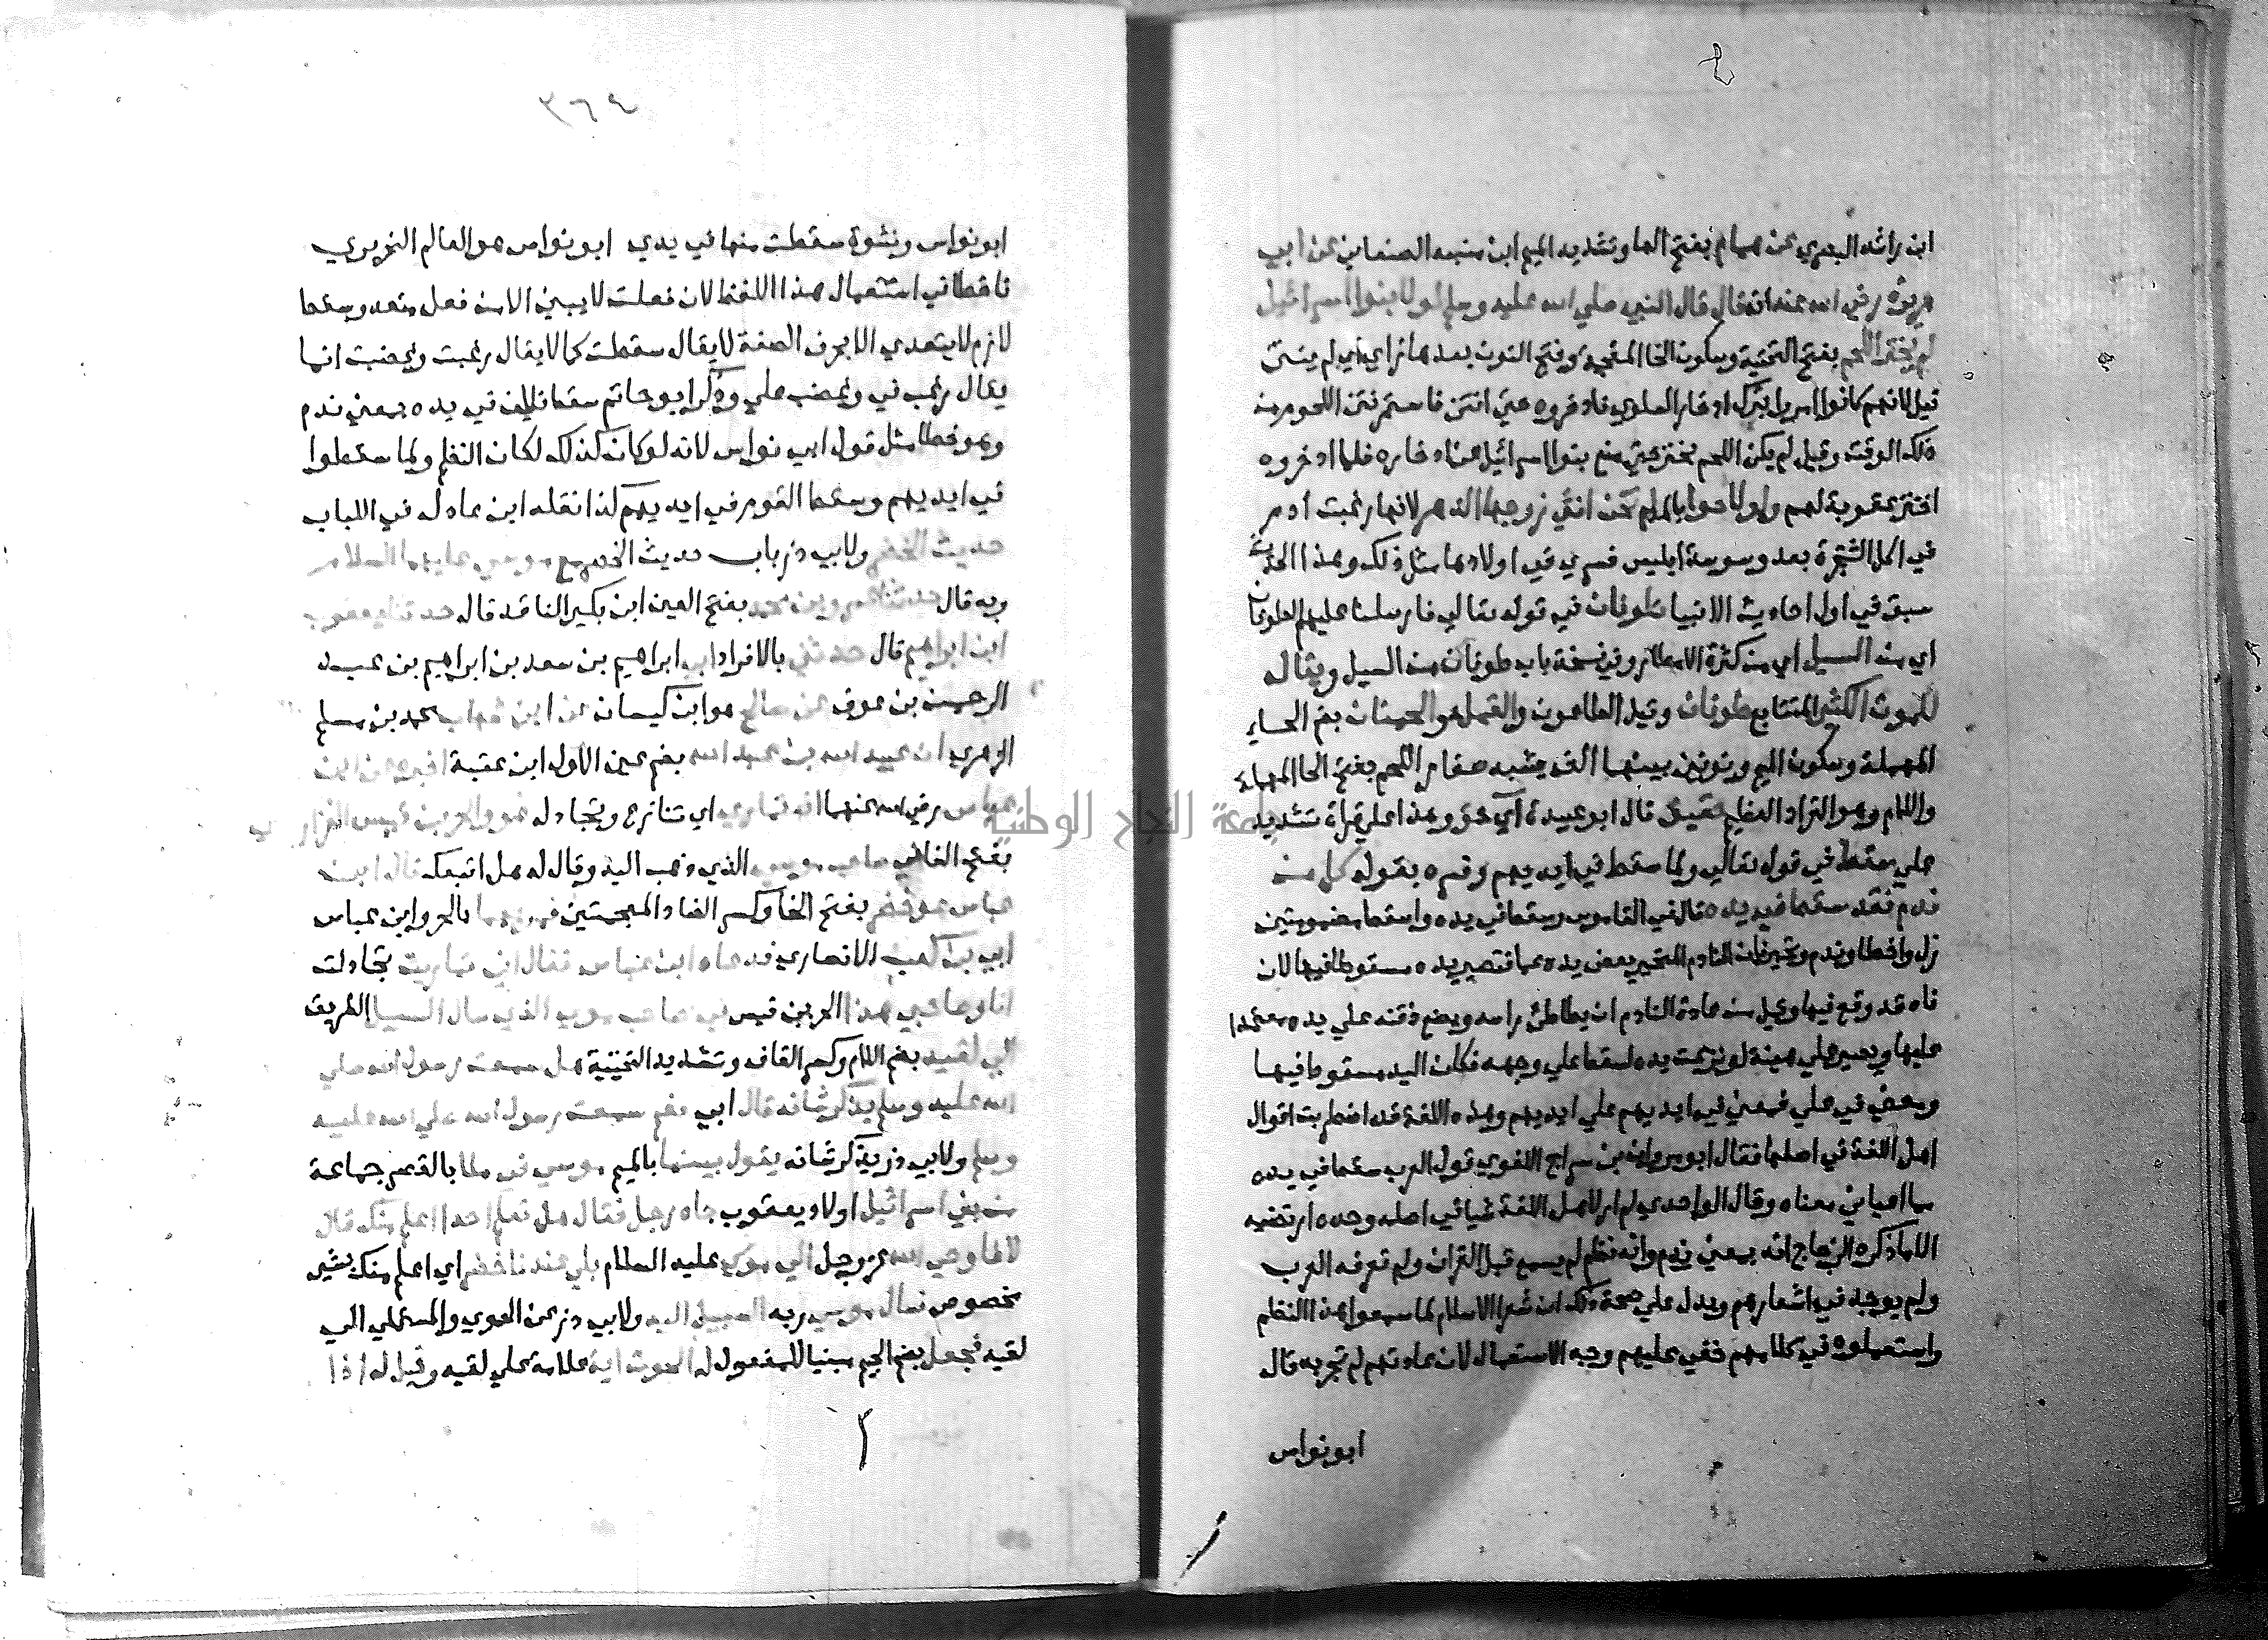 ابن راشد البصري عن همام بفتح الها وتشديد الميم ابن منبه الصنعاني عن ابي
هريرة رضي الله عنه انه قال قال النبي صلي الله عليه وسلم لولا بنوا اسرائيل
لم يخنز اللحم بفتح التحتية وسكون الخا المعجمة وفتح النون بعدها زاي اي لم ينتن
قيل لانهم كانوا امروا بترك ادخار السلوي فادخروه حتي انتن فاستمر نتن اللحوم من
ذلك الوقت وقيل لم يكن اللحم يخنز حتي منع بنوا اسرائيل عن ادخاره فلما ادخروه
اختنز عقوبة لهم ولولا حوا بالمد لم تخن انثي زوجها الدهر لانها رغبت ادم
في اكل الشجرة بعد وسوسة ابليس فسري في اولادها مثل ذلك وهذا الحديث
سبق في اول احاديث الانبيا طوفان في قوله تعالي فارسلنا عليهم الطوفان
اي من السيل اي من كثرة الامطار وفي نسخة باب طوفان من السيل ويقال
للموت الكثير المتتابع طوفان وقيل الطاعون والقمل هو الحمنان بضم الحاء
المهملة وسكون الميم ونونين بينهما الف يشبه صغار اللحم بفتح الحا المهملة
واللام وهو القراد العظيم حقيق قال ابو عبيدة اي حق وهذا علي قراة تشديد
علي سقط في قوله تعالي ولما سقط في ايديهم وفسره بقوله كل من
ندم فقد سقط في يده قال في القاموس وسقط في يده واسقط مضمومتين
زل واخطا وندم وتحير فان النادم المتحير يعض يده عما فتصير يده مسقوطا فيها لان
فاه قد وقع فيها وقيل من عادة النادم ان يطاطئ راسه ويضع ذقنه علي يده معتمدا
عليها ويصير علي هيئة لو نزعت يده لسقط علي وجهه فكان اليد مسقوط فيها
وبعض في علي فمعني في ايديهم علي ايديهم وهذه اللغة قد اضطربت اقوال
اهل اللغة في اصلها فقال ابو مروان بن سراج اللغوي قول العرب سقط في يده
مما اعياني معناه وقال الواحدي لم ار لاهل اللغة شيا في اصله وحده ارتضيه
الا ما ذكره الزجاج انه بمعني ندم وانه نظم لم يسمع قبل القران ولم تعرفه العرب
ولم يوجد في اشعارهم ويدل علي صحة ذلك ان شعرا الاسلام لما سمعوا هذا النظم
واستعملوه في كلامهم خفي عليهم وجه الاستعمال لان عادتهم لم تجر به قال
ابو نواس
٣٦٤
ابو نواس ونشوة سقطت منها في يدي ابو نواس هو العالم النحريري
فاخطا في استعمال هذا اللفظ لان فعلت لا يبني الا من فعل متعد وسقط
لازم لا يتعدي الا بحرف الصفة لا يقال سقطت كما لا يقال رغبت وغضبت انما
يقال رغب في وغضب علي وذكر ابو حاتم سقط فلان في يده بمعني ندم
وهو خطا مثل قول ابي نواس لانه لو كان كذلك لكان النظم ولما سقطوا
في ايديهم وسقط القوم في ايديهم كذا نقله ابن عادل في اللباب
حديث الخضر ولابي ذر باب حديث الخضر مع موسي عليهما السلام
وبه قال حدثنا عمرو بن محمد بفتح العين ابن بكير الناقد قال حدثنا يعقوب
ابن ابراهيم قال حدثني بالافراد ابي ابراهيم بن سعد بن ابراهيم بن عبد
الرحمن بن عوف عن صالح هو ابن كيسان عن ابن شهاب محمد بن مسلم
الزهري ان عبيد الله بن عبد الله بضم عين الاول ابن عتبة اخبره عن ابن
عباس رضي الله عنهما انه تماري اي تنازع وتجادل هو والحر بن قيس الفزاري
بفتح الفا في صاحب موسي الذي ذهب اليه وقال له هل اتبعك قال ابن
عباس هو خضر بفتح الخا وكسر الضاد المعجمتين فمر بهما بالحر وابن عباس
ابي بن كعب الانصاري فدعاه ابن عباس فقال اني تماريت تجادلت
انا وصاحبي هذا الحر بن قيس في صاحب موسي الذي سال السبيل الطريق
الي لقيه بضم اللام وكسر القاف وتشديد التحتية هل سمعت رسول الله صلي
الله عليه وسلم يذكر شانه قال ابي نعم سمعت رسول الله صلي الله عليه
وسلم ولابي ذر يذكر شانه يقول بينما بالميم موسي في ملا بالقصر جماعة
من بني اسرائيل اولاد يعقوب جاه رجل فقال هل تعلم احدا اعلم منك قال
لا فاوحي الله عز وجل الي موسي عليه السلام بلي عبدنا خضر اي اعلم منك بشي
مخصوص فسال موسي ربه السبيل اليه ولابي ذر عن الحموي والمستملي الي
لقيه فجعل بضم الجيم مبنيا للمفعول له الحوت اية علامة علي لقيه وقيل له اذا
جامعة النجاح الوطنية